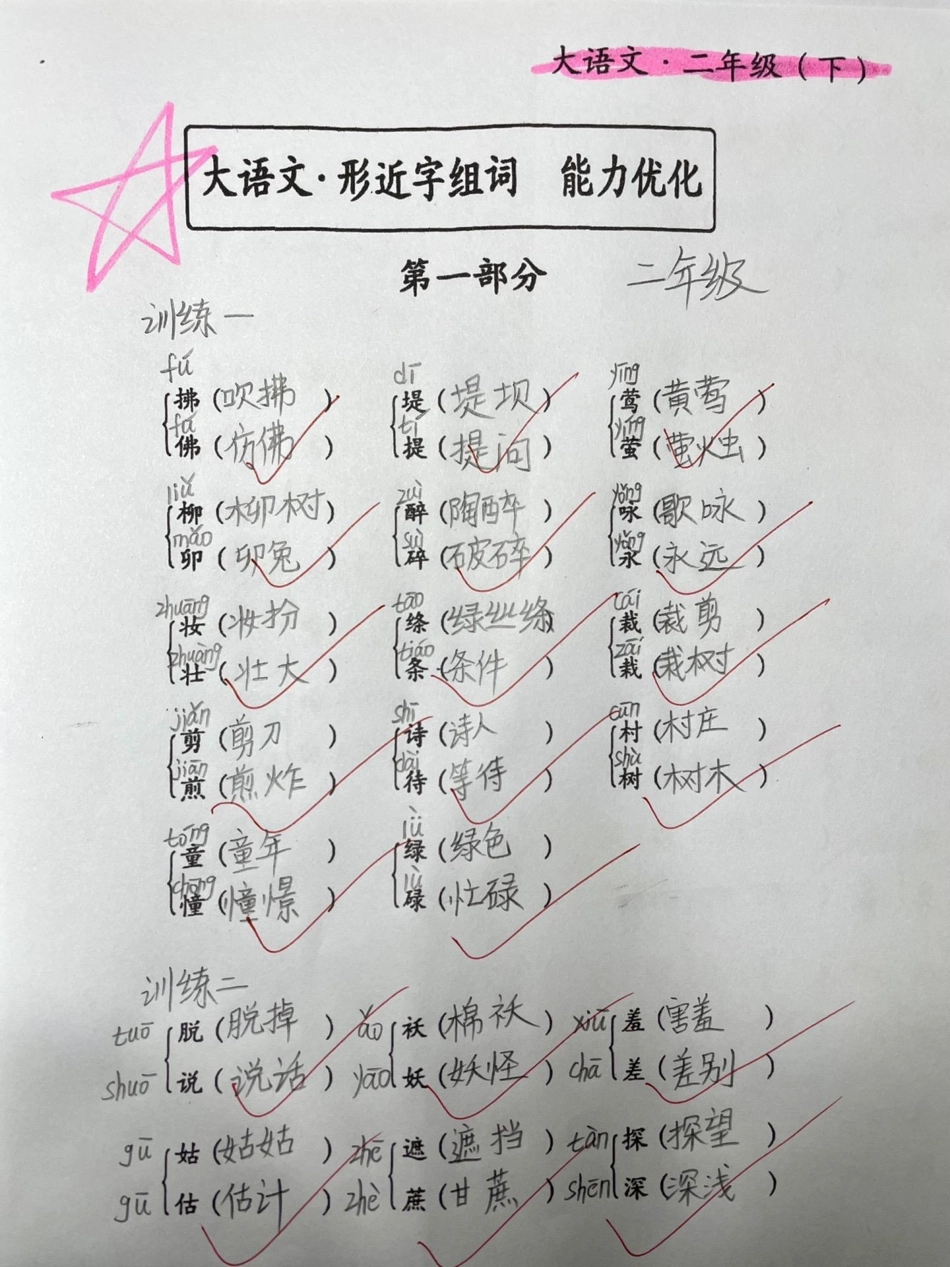 大语文·二年级(下)
大语文·形近字组词 能力优化
第一部分 二年级
训练一
fú dī yīng
拂(吹拂) 堤(堤坝) 莺(黄莺)
fú tí yíng
佛(仿佛) 提(提问) 萤(萤火虫)
liǔ zuì yǒng
柳(柳树) 醉(陶醉) 咏(歌咏)
mǎo suì yǒng
卯(卯兔) 碎(破碎) 永(永远)
zhuāng tāo cái
妆(妆扮) 绦(绿丝绦) 裁(裁剪)
zhuàng tiáo zāi
壮(壮大) 条(条件) 栽(栽树)
jiǎn shī cūn
剪(剪刀) 诗(诗人) 村(村庄)
jiān dài shù
煎(煎炸) 待(等待) 树(树木)
tóng lǜ
童(童年) 绿(绿色)
chōng lù
憧(憧憬) 碌(忙碌)
训练二
tuō 脱(脱掉) ǎo 袄(棉袄) xiū 羞(害羞)
shuō 说(说话) yāo 妖(妖怪) chā 差(差别)
gū 姑(姑姑) zhē 遮(遮挡) tàn 探(探望)
gū 估(估计) zhè 蔗(甘蔗) shēn 深(深浅)